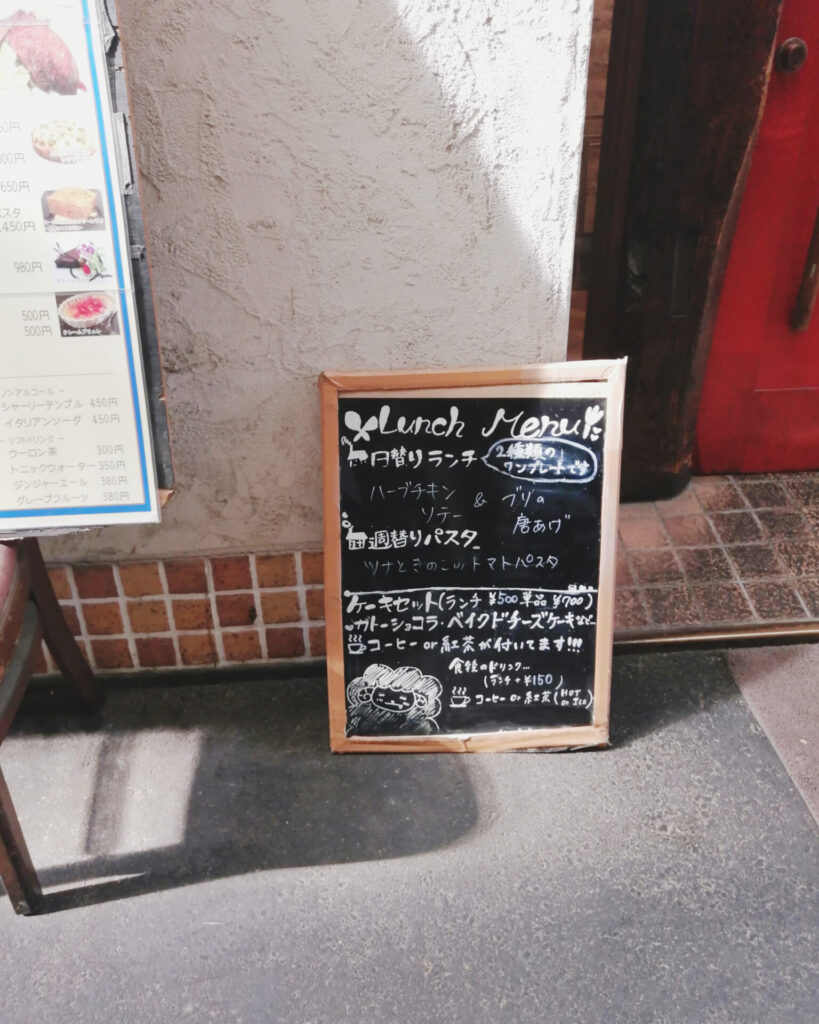 00円
650円
パスタ
1,450円
980円
500円
500円
クレームブリュレ
ノンアルコール ー
シャーリーテンプル 450円
イタリアンソーダ 450円
ー ソフトドリンク ー
ウーロン茶 300円
トニックウォーター 350円
ジンジャーエール 380円
グレープフルーツ 380円
Lunch Menu
日替りランチ
2種類の
ワンプレートです
ハーブチキン
ソテー
&
ブリの
唐あげ
週替りパスタ
ツナときのこのトマトパスタ
ケーキセット(ランチ ¥500 単品 ¥700)
ガトーショコラ・ベイクドチーズケーキなど
コーヒー or 紅茶が付いてます!!!
食後のドリンク...
(ランチ + ¥150)
コーヒー or 紅茶 (HOT or Ice)